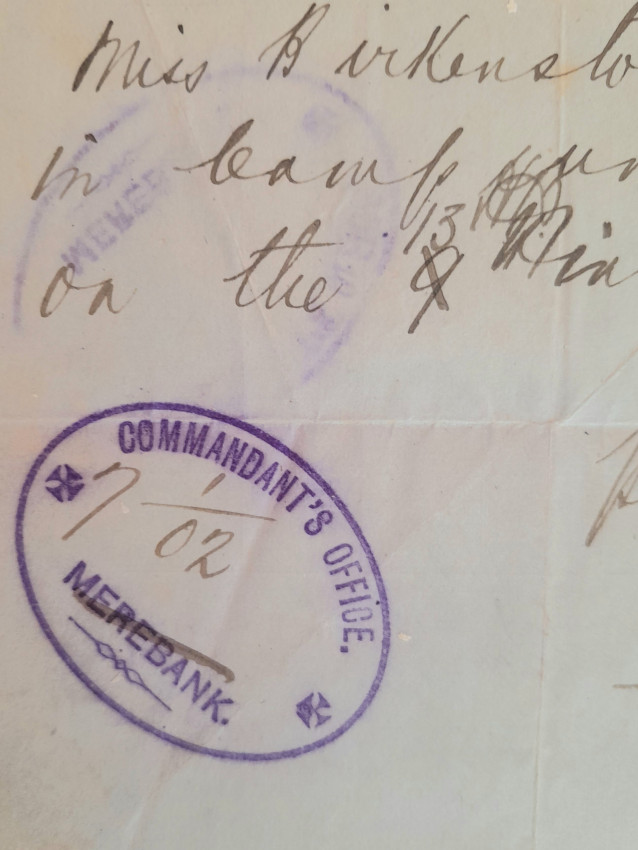 Miss Birkensto
in Camp
on the 13
COMMANDANT'S OFFICE.
7 1/02
MEREBANK.